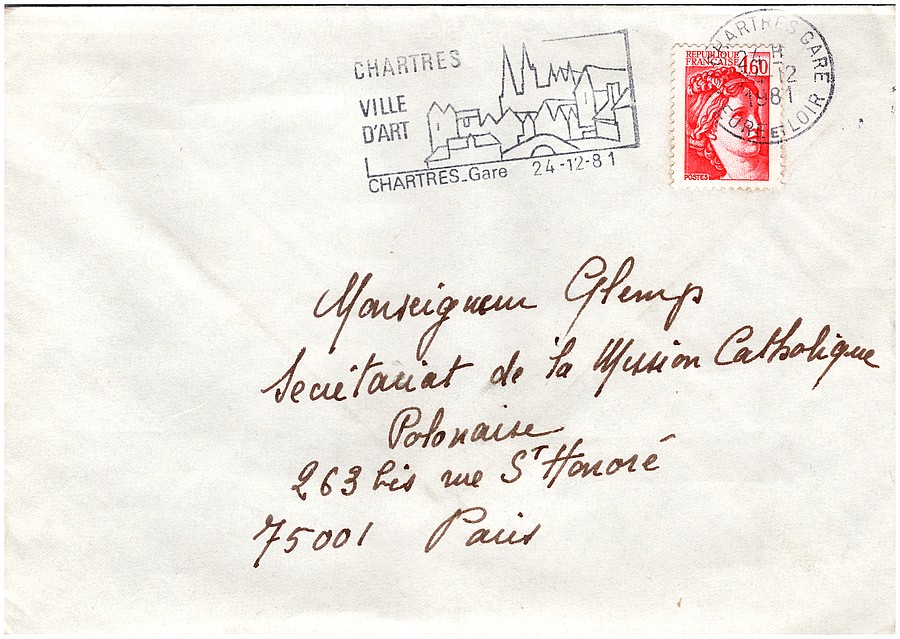 CHARTRES
VILLE
D'ART
CHARTRES_Gare 24-12-81
REPUBLIQUE
FRANÇAISE 1,60
POSTES
CHARTRES GARE
24-12
1981
EURE ET LOIR
Monseigneur Glemp
Secrétariat de la Mission Catholique
Polonaise
263 bis rue St Honoré
75001 Paris